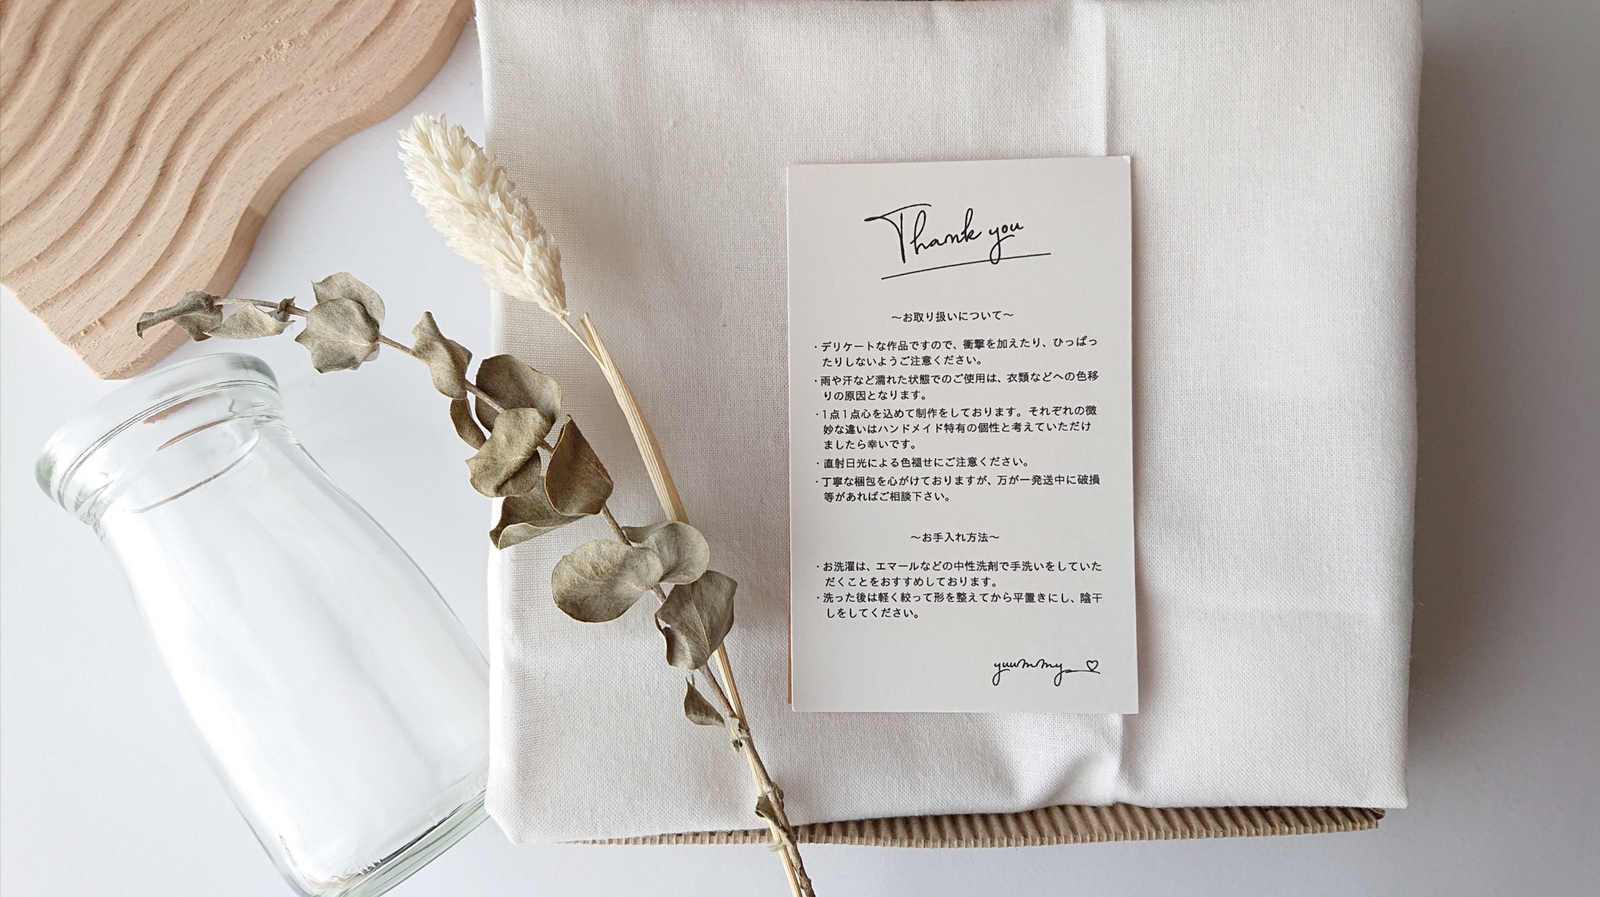 Thank you
～お取り扱いについて～
・デリケートな作品ですので、衝撃を加えたり、ひっぱっ
たりしないようご注意ください。
・雨や汗など濡れた状態でのご使用は、衣類などへの色移
りの原因となります。
・1点1点心を込めて制作をしております。それぞれの微
妙な違いはハンドメイド特有の個性と考えていただけ
ましたら幸いです。
・直射日光による色褪せにご注意ください。
・丁寧な梱包を心がけておりますが、万が一発送中に破損
等があればご相談下さい。
～お手入れ方法～
・お洗濯は、エマールなどの中性洗剤で手洗いをしていた
だくことをおすすめしております。
・洗った後は軽く絞って形を整えてから平置きにし、陰干
しをしてください。
yuummy